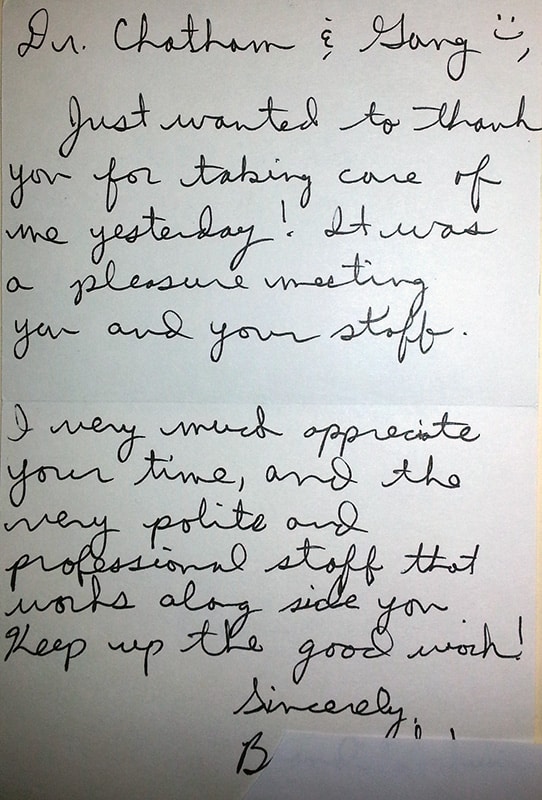 Dr. Chatham & Gang :),
Just wanted to thank
you for taking care of
me yesterday! It was
a pleasure meeting
you and your staff.
I very much appreciate
your time, and the
very polite and
professional staff that
works along side you.
Keep up the good work!
Sincerely,
B